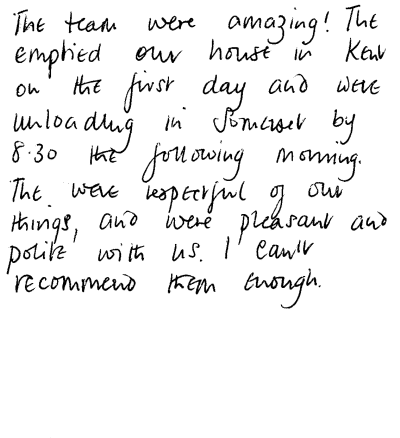 The team were amazing! The
emptied our house in Kent
on the first day and were
unloading in Somerset by
8.30 the following morning.
The were respectful of our
things, and were pleasant and
polite with us. I can't
recommend them enough.